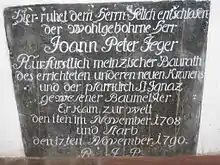 Hier ruhet dem Herrn Selich entschlaffen
der Wohlgebohrne Herr
Joann Peter Jeger
Kurfurstlich meinzischer Baurath
des errichteten underen neuen Kranens
und der pfarrkirch St Ignaz
gewesener Baumeister
Er Kam zur welt
den 1ten im November 1708
und starb
den 17ten November 1790.
R. I. P.